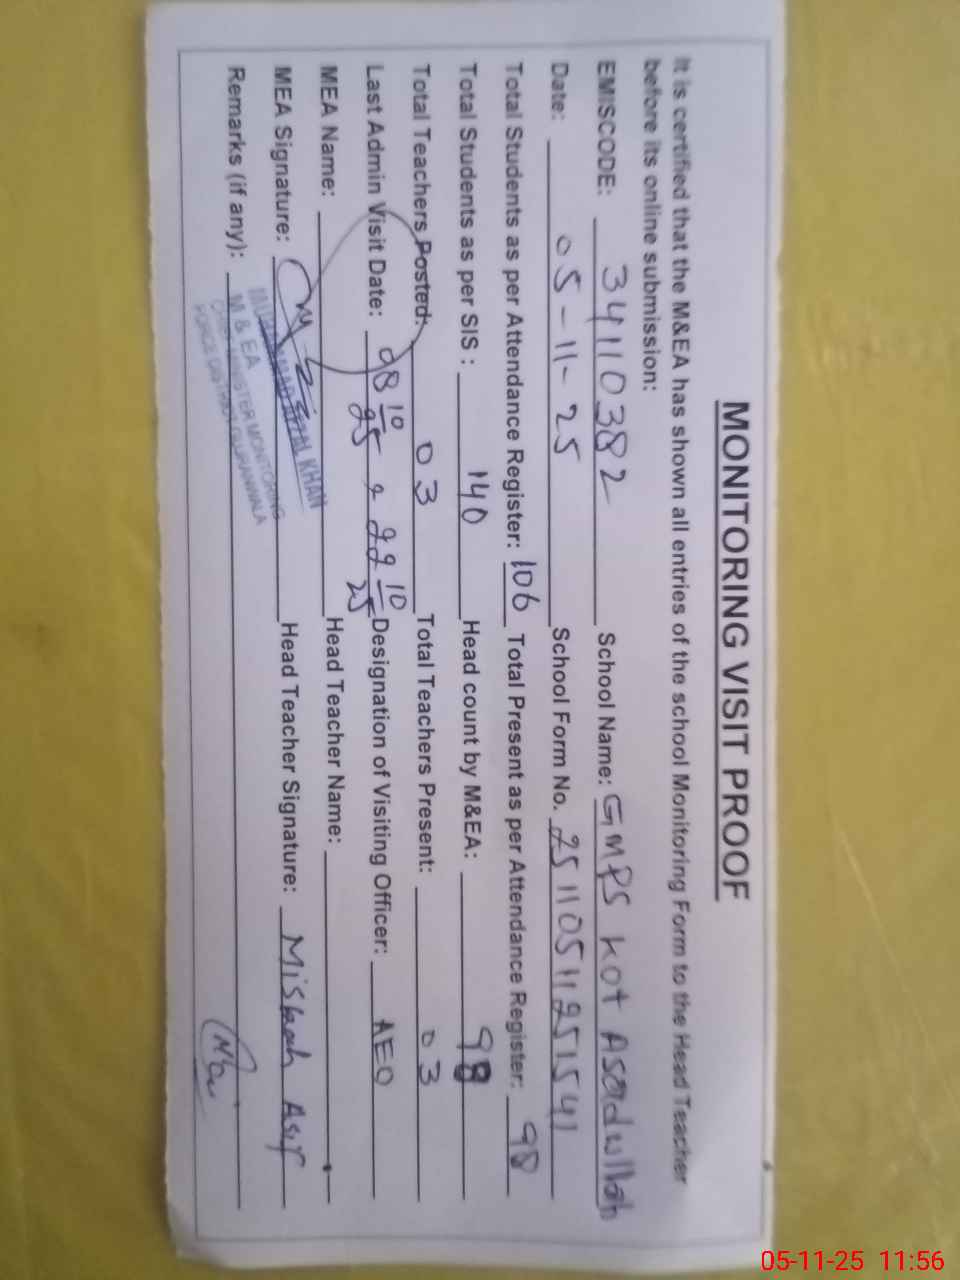 MONITORING VISIT PROOF
It is certified that the M&EA has shown all entries of the school Monitoring Form to the Head Teacher
before its online submission:
EMISCODE: 34110382 School Name: GMPS Kot Asadullah
Date: 05-11-25 School Form No. 25110511251541
Total Students as per Attendance Register: 106 Total Present as per Attendance Register: 98
Total Students as per SIS : 140 Head count by M&EA: 98
Total Teachers Posted: 03 Total Teachers Present: 03
Last Admin Visit Date: 08 10/25 & 22 10/25 Designation of Visiting Officer: AEO
MEA Name: Head Teacher Name:
MEA Signature: Head Teacher Signature: Misbah Asif
Remarks (if any):
KHAN
M & EA
MINISTER MONITORING
FORCE DISTRICT GUJRANWALA
05-11-25 11:56